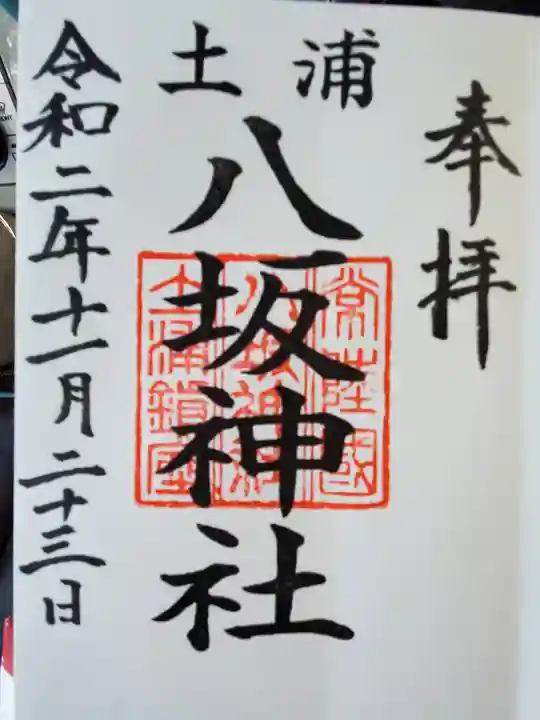 奉拝
土浦
八坂神社
令和二年十一月二十三日
常陸國
八坂神社
土浦鎮座